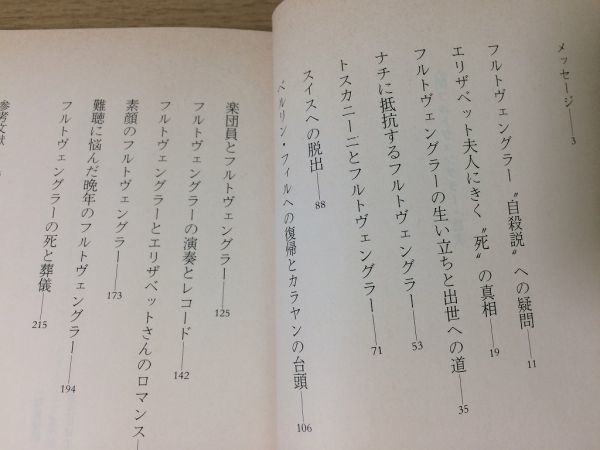 メッセージ——3
フルトヴェングラー〝自殺説〟への疑問——11
エリザベット夫人にきく〝死〟の真相——19
フルトヴェングラーの生い立ちと出世への道——35
ナチに抵抗するフルトヴェングラー——53
トスカニーニとフルトヴェングラー——71
スイスへの脱出——88
ベルリン・フィルへの復帰とカラヤンの台頭——106
楽団員とフルトヴェングラー——125
フルトヴェングラーの演奏とレコード——142
フルトヴェングラーとエリザベットさんのロマンス—
素顔のフルトヴェングラー——173
難聴に悩んだ晩年のフルトヴェングラー——194
フルトヴェングラーの死と葬儀——215
参考文献